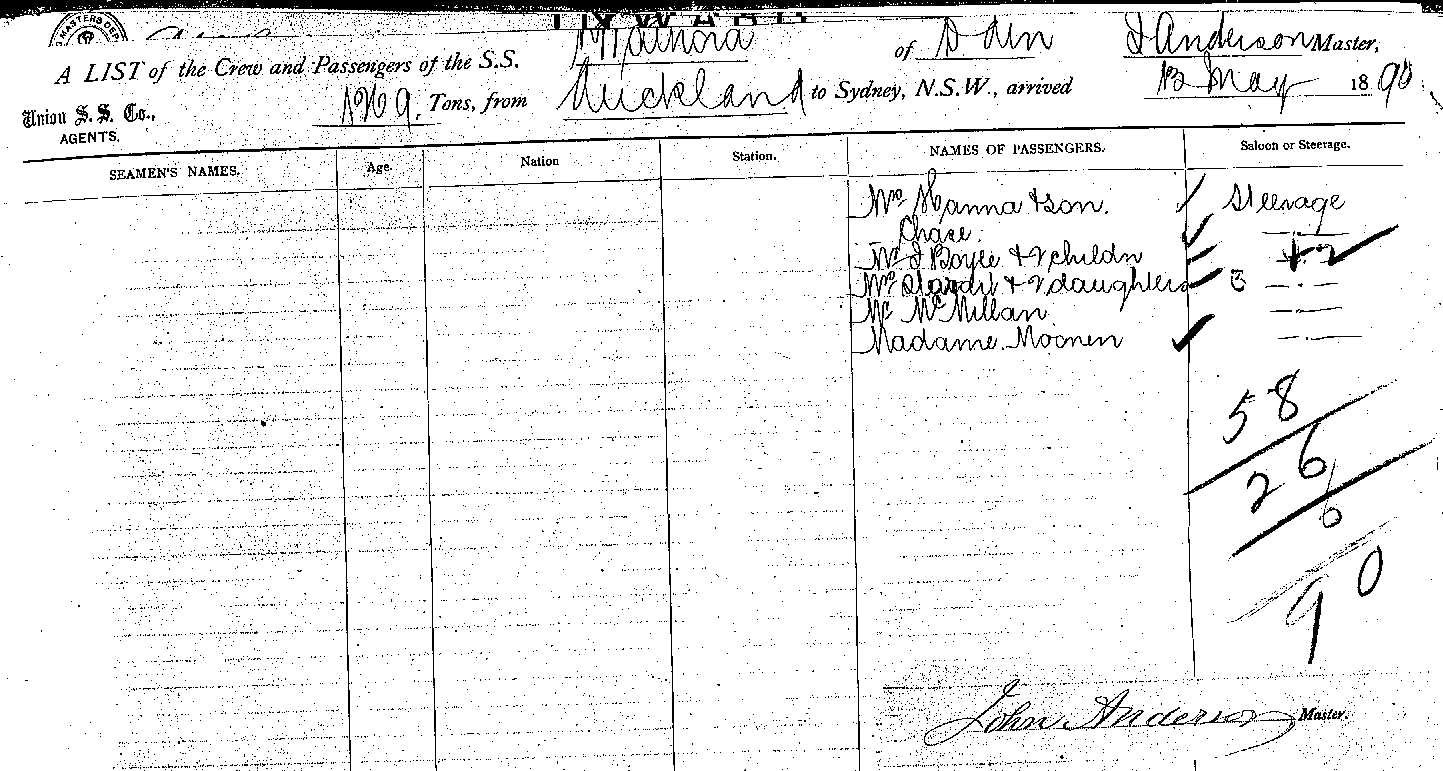 MASTERS DEP
INWARD
A LIST of the Crew and Passengers of the S.S. of D Din J Anderson Master,
Union S. S. Co., Tons, from Auckland to Sydney, N.S.W., arrived 12 May 1890
AGENTS.
SEAMEN'S NAMES. Age. Nation Station. NAMES OF PASSENGERS. Saloon or Steerage.
Mrs Hanna & son. Steerage
Chase.
Mrs J Boyle & 2 childn
Mrs & 2 daughters 3
Mc Millan
Madame Moonen
58
26
6
90
John Anderson Master.